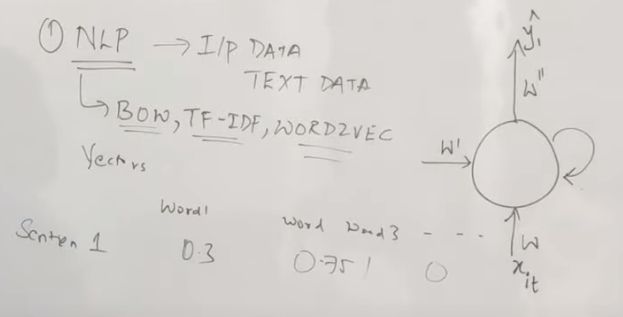 ① NLP → I/P DATA
TEXT DATA
↳ BOW, TF-IDF, WORD2VEC
Vectors
Word1 word word3 - - -
Senten 1 0.3 0.75 0
ŷ₁
W''
W'
W
xit